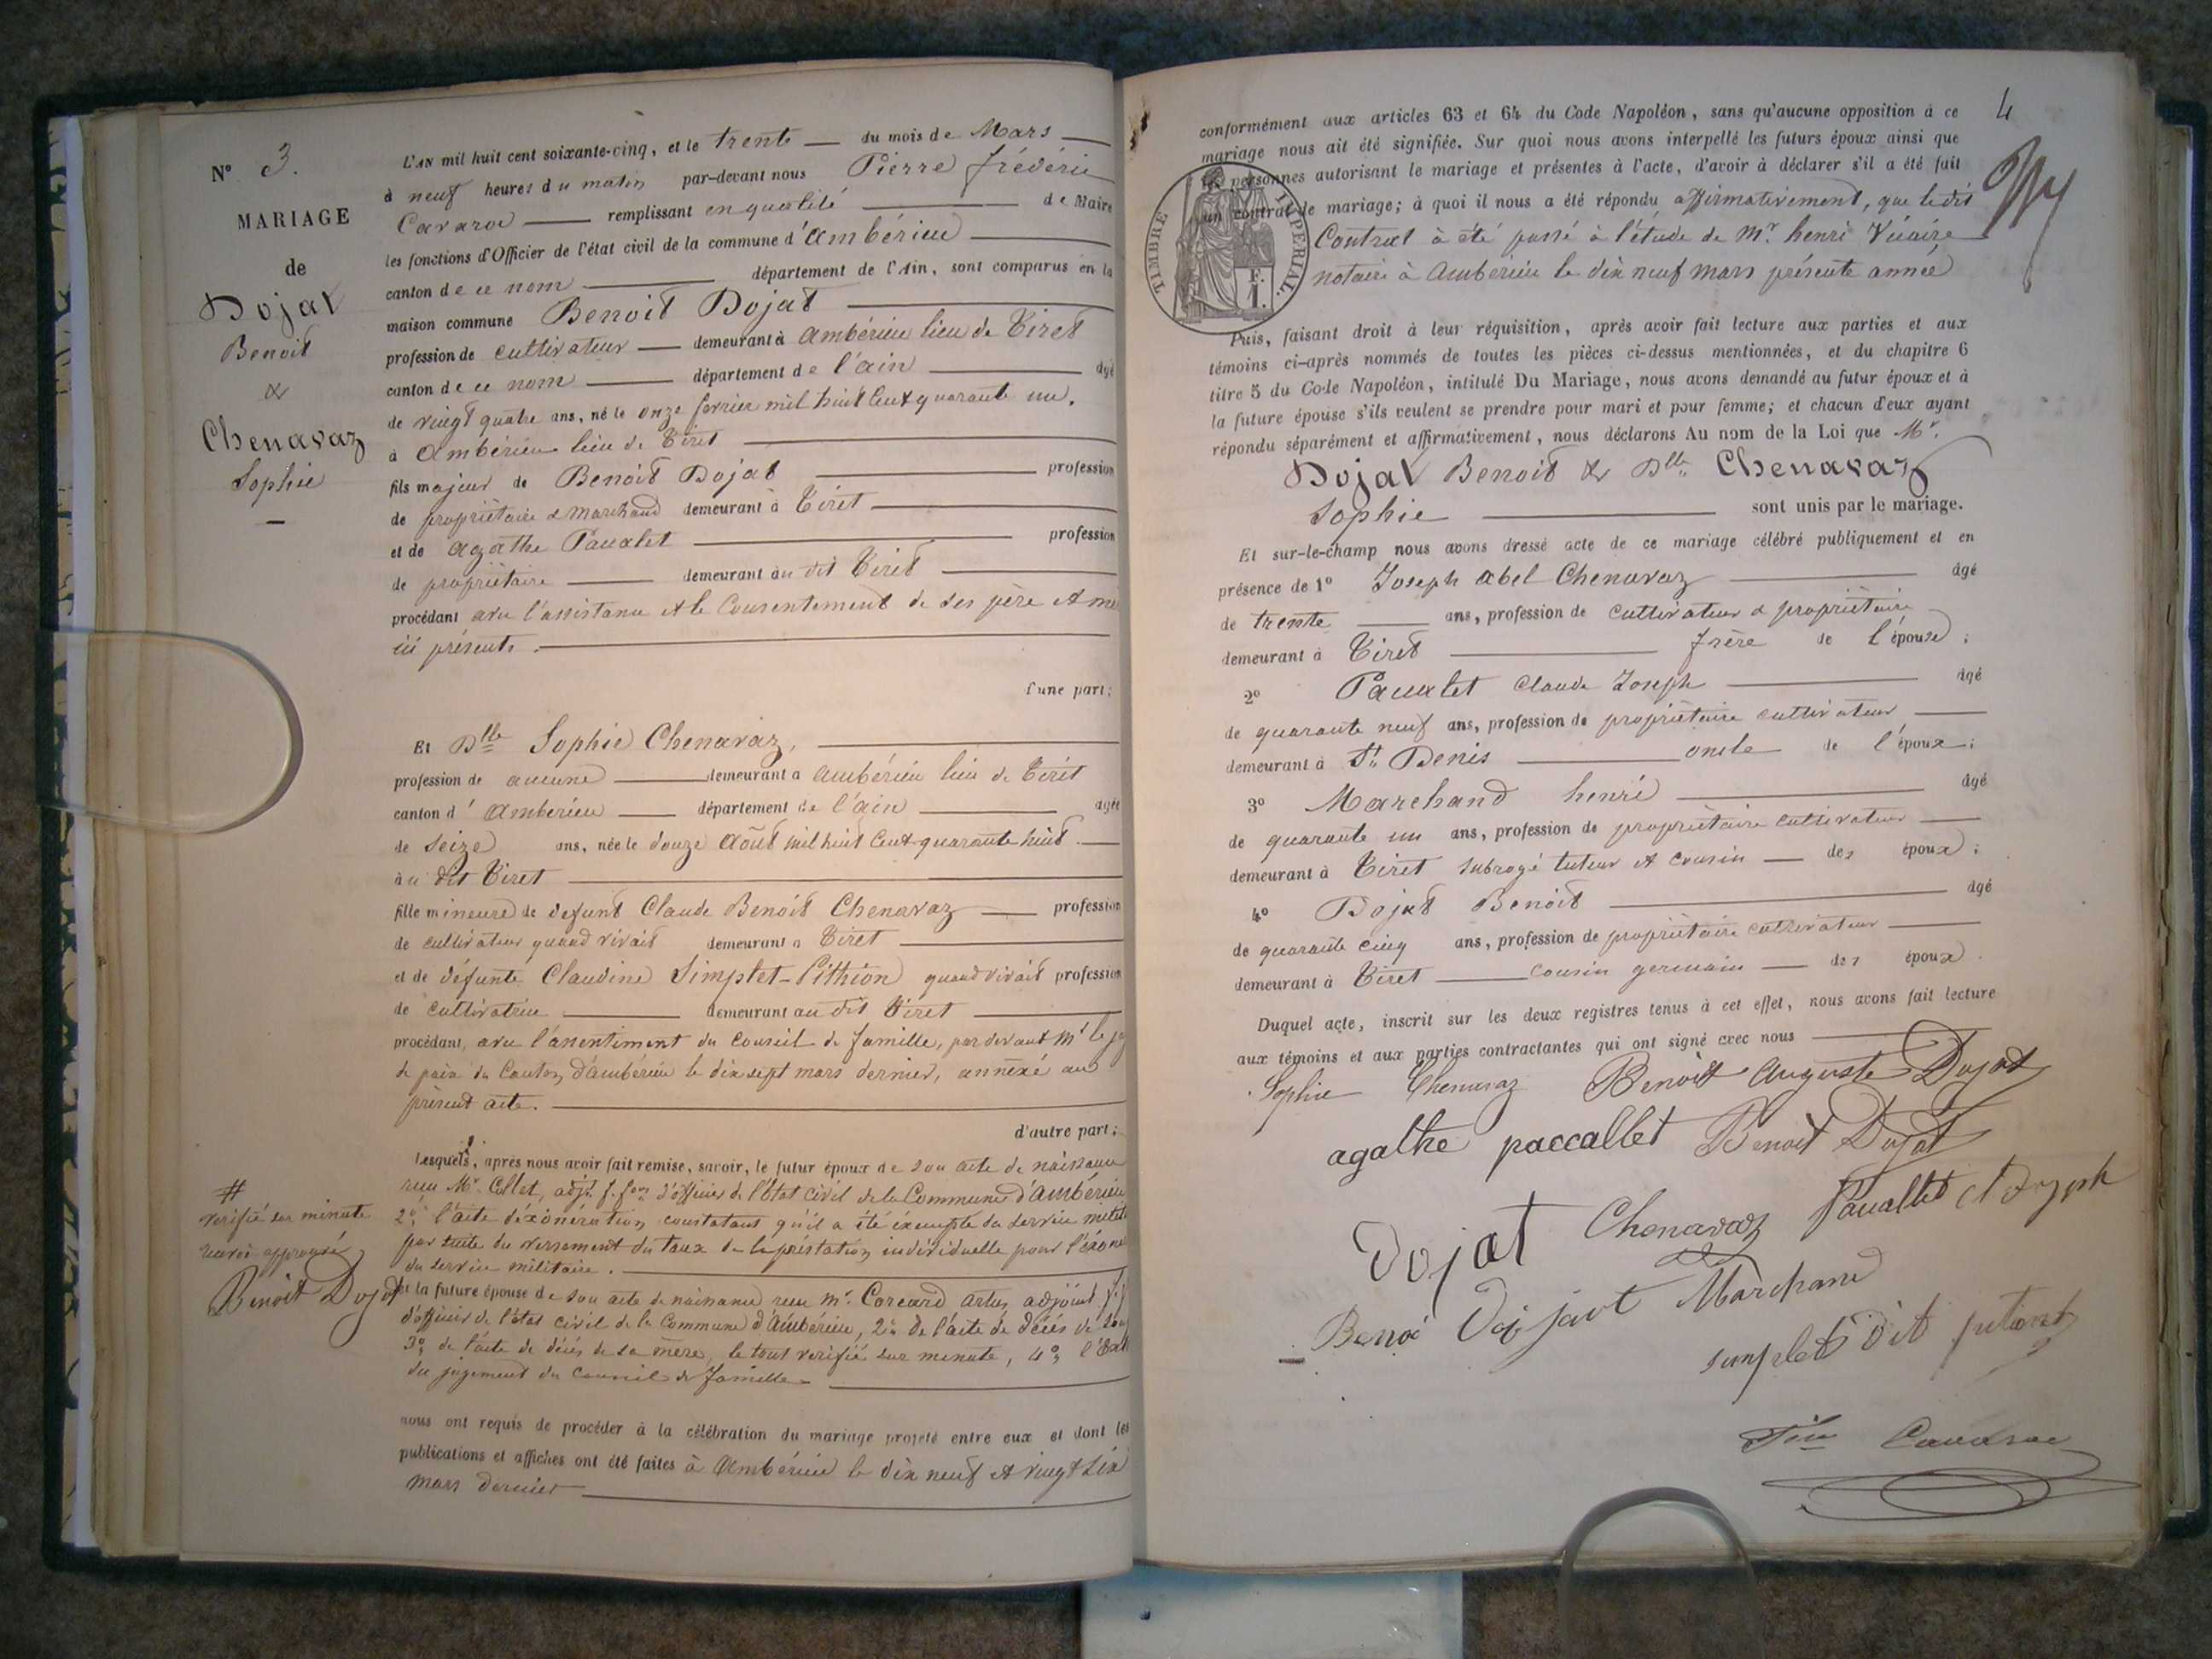 N° 3.
MARIAGE
de
Dojat
Benoit
&
Chenavaz
Sophie
L'AN mil huit cent soixante-cinq, et le trente du mois de Mars
à neuf heures du matin par-devant nous Pierre frédéric
Cavaroc remplissant en qualité de Maire
les fonctions d'Officier de l'état civil de la commune d'ambérieu
canton de ce nom département de l'Ain, sont comparus en la
maison commune Benoit Dojat
profession de cultivateur demeurant à ambérieu lieu de Tiret
canton de ce nom département de l'ain âgé
de vingt quatre ans, né le onze fevrier mil huit Cent quarante un.
à Ambérieu lieu de Tiret
fils majeur de Benoit Dojat profession
de propriétaire & Marchand demeurant à Tiret
et de agathe Paualet profession
de propriétaire demeurant au dit Tiret
procédant avec l'assistance et le Consentement de ses père et me
ici présents.
d'une part;
Et Dlle Sophie Chenavaz,
profession de aucune demeurant à ambérieu lieu de Tiret
canton d'Amberieu département de l'ain âgée
de seize ans, née le douze Août mil huit Cent quarante huit.
au dit Tiret
fille mineure de defunt Claude Benoit Chenavaz profession
de cultivateur quand vivait demeurant à Tiret
et de défunte Claudine Simplet-Pithion quand vivait profession
de cultivatrice demeurant au dit Tiret
procédant, avec l'assentiment du Conseil de famille, par devant Mr le ju
de paix du Canton d'ambérieu le dix sept mars dernier, annexé au
présent acte.
d'autre part;
Lesquels, après nous avoir fait remise, savoir, le futur époux de son acte de naissance
reçu Mr. Collet, adjt. f. fon d'officier de l'Etat civil de la Commune d'Ambérieu
2° l'acte d'éxonération constatant qu'il a été éxempté du service milit
par suite du versement du taux de la préstation individuelle pour l'éxone
du service militaire.
#
verifié sur minute
renvoi approuvé
Benoit Dojat
et la future épouse de son acte de naissance reçu Mr. Corcard Artus, adjoint f. f
d'officier de l'état civil de la Commune d'Ambérieu, 2° de l'acte de décés de son
3° de l'acte de décés de sa mère, le tout verifié sur minute, 4° l'Ext
du jugement du Conseil de famille
nous ont requis de procéder à la célébration du mariage projeté entre eux et dont les
publications et affiches ont été faites à Ambérieu le dix neuf et vingt six
mars dernier
4
conformément aux articles 63 et 64 du Code Napoléon, sans qu'aucune opposition à ce
mariage nous ait été signifiée. Sur quoi nous avons interpellé les futurs époux ainsi que
les personnes autorisant le mariage et présentes à l'acte, d'avoir à déclarer s'il a été fait
un contrat de mariage; à quoi il nous a été répondu affirmativement, que le dit
Contrat à été passé à l'étude de Mr. henri Vicaire
notaire à Ambérieu le dix neuf mars présente année
TIMBRE IMPERIAL.
F.
1.
Puis, faisant droit à leur réquisition, après avoir fait lecture aux parties et aux
témoins ci-après nommés de toutes les pièces ci-dessus mentionnées, et du chapitre 6
titre 5 du Code Napoléon, intitulé Du Mariage, nous avons demandé au futur époux et à
la future épouse s'ils veulent se prendre pour mari et pour femme; et chacun d'eux ayant
répondu séparément et affirmativement, nous déclarons Au nom de la Loi que Mr.
Dojat Benoit & Dlle Chenavaz
Sophie sont unis par le mariage.
Et sur-le-champ nous avons dressé acte de ce mariage célébré publiquement et en
présence de 1° Joseph Abel Chenavaz âgé
de trente ans, profession de cultivateur & propriétaire
demeurant à Tiret frère de l'épouse;
2° Paualet Claude Joseph âgé
de quarante neuf ans, profession de propriétaire cultivateur
demeurant à St. Denis oncle de l'époux;
3° Marchand henri âgé
de quarante un ans, profession de propriétaire cultivateur
demeurant à Tiret subrogé tuteur et cousin des époux;
4° Dojat Benoit âgé
de quarante cinq ans, profession de propriétaire cultivateur
demeurant à Tiret cousin germain des époux.
Duquel acte, inscrit sur les deux registres tenus à cet effet, nous avons fait lecture
aux témoins et aux parties contractantes qui ont signé avec nous
Sophie Chenavaz Benoit Auguste Dojat
agathe paccallet Benoit Dojat
Dojat Chenavaz Pauallet Cl Joseph
Benoi Dojat Marchand
simplet dit pition
Fric Cavaroc